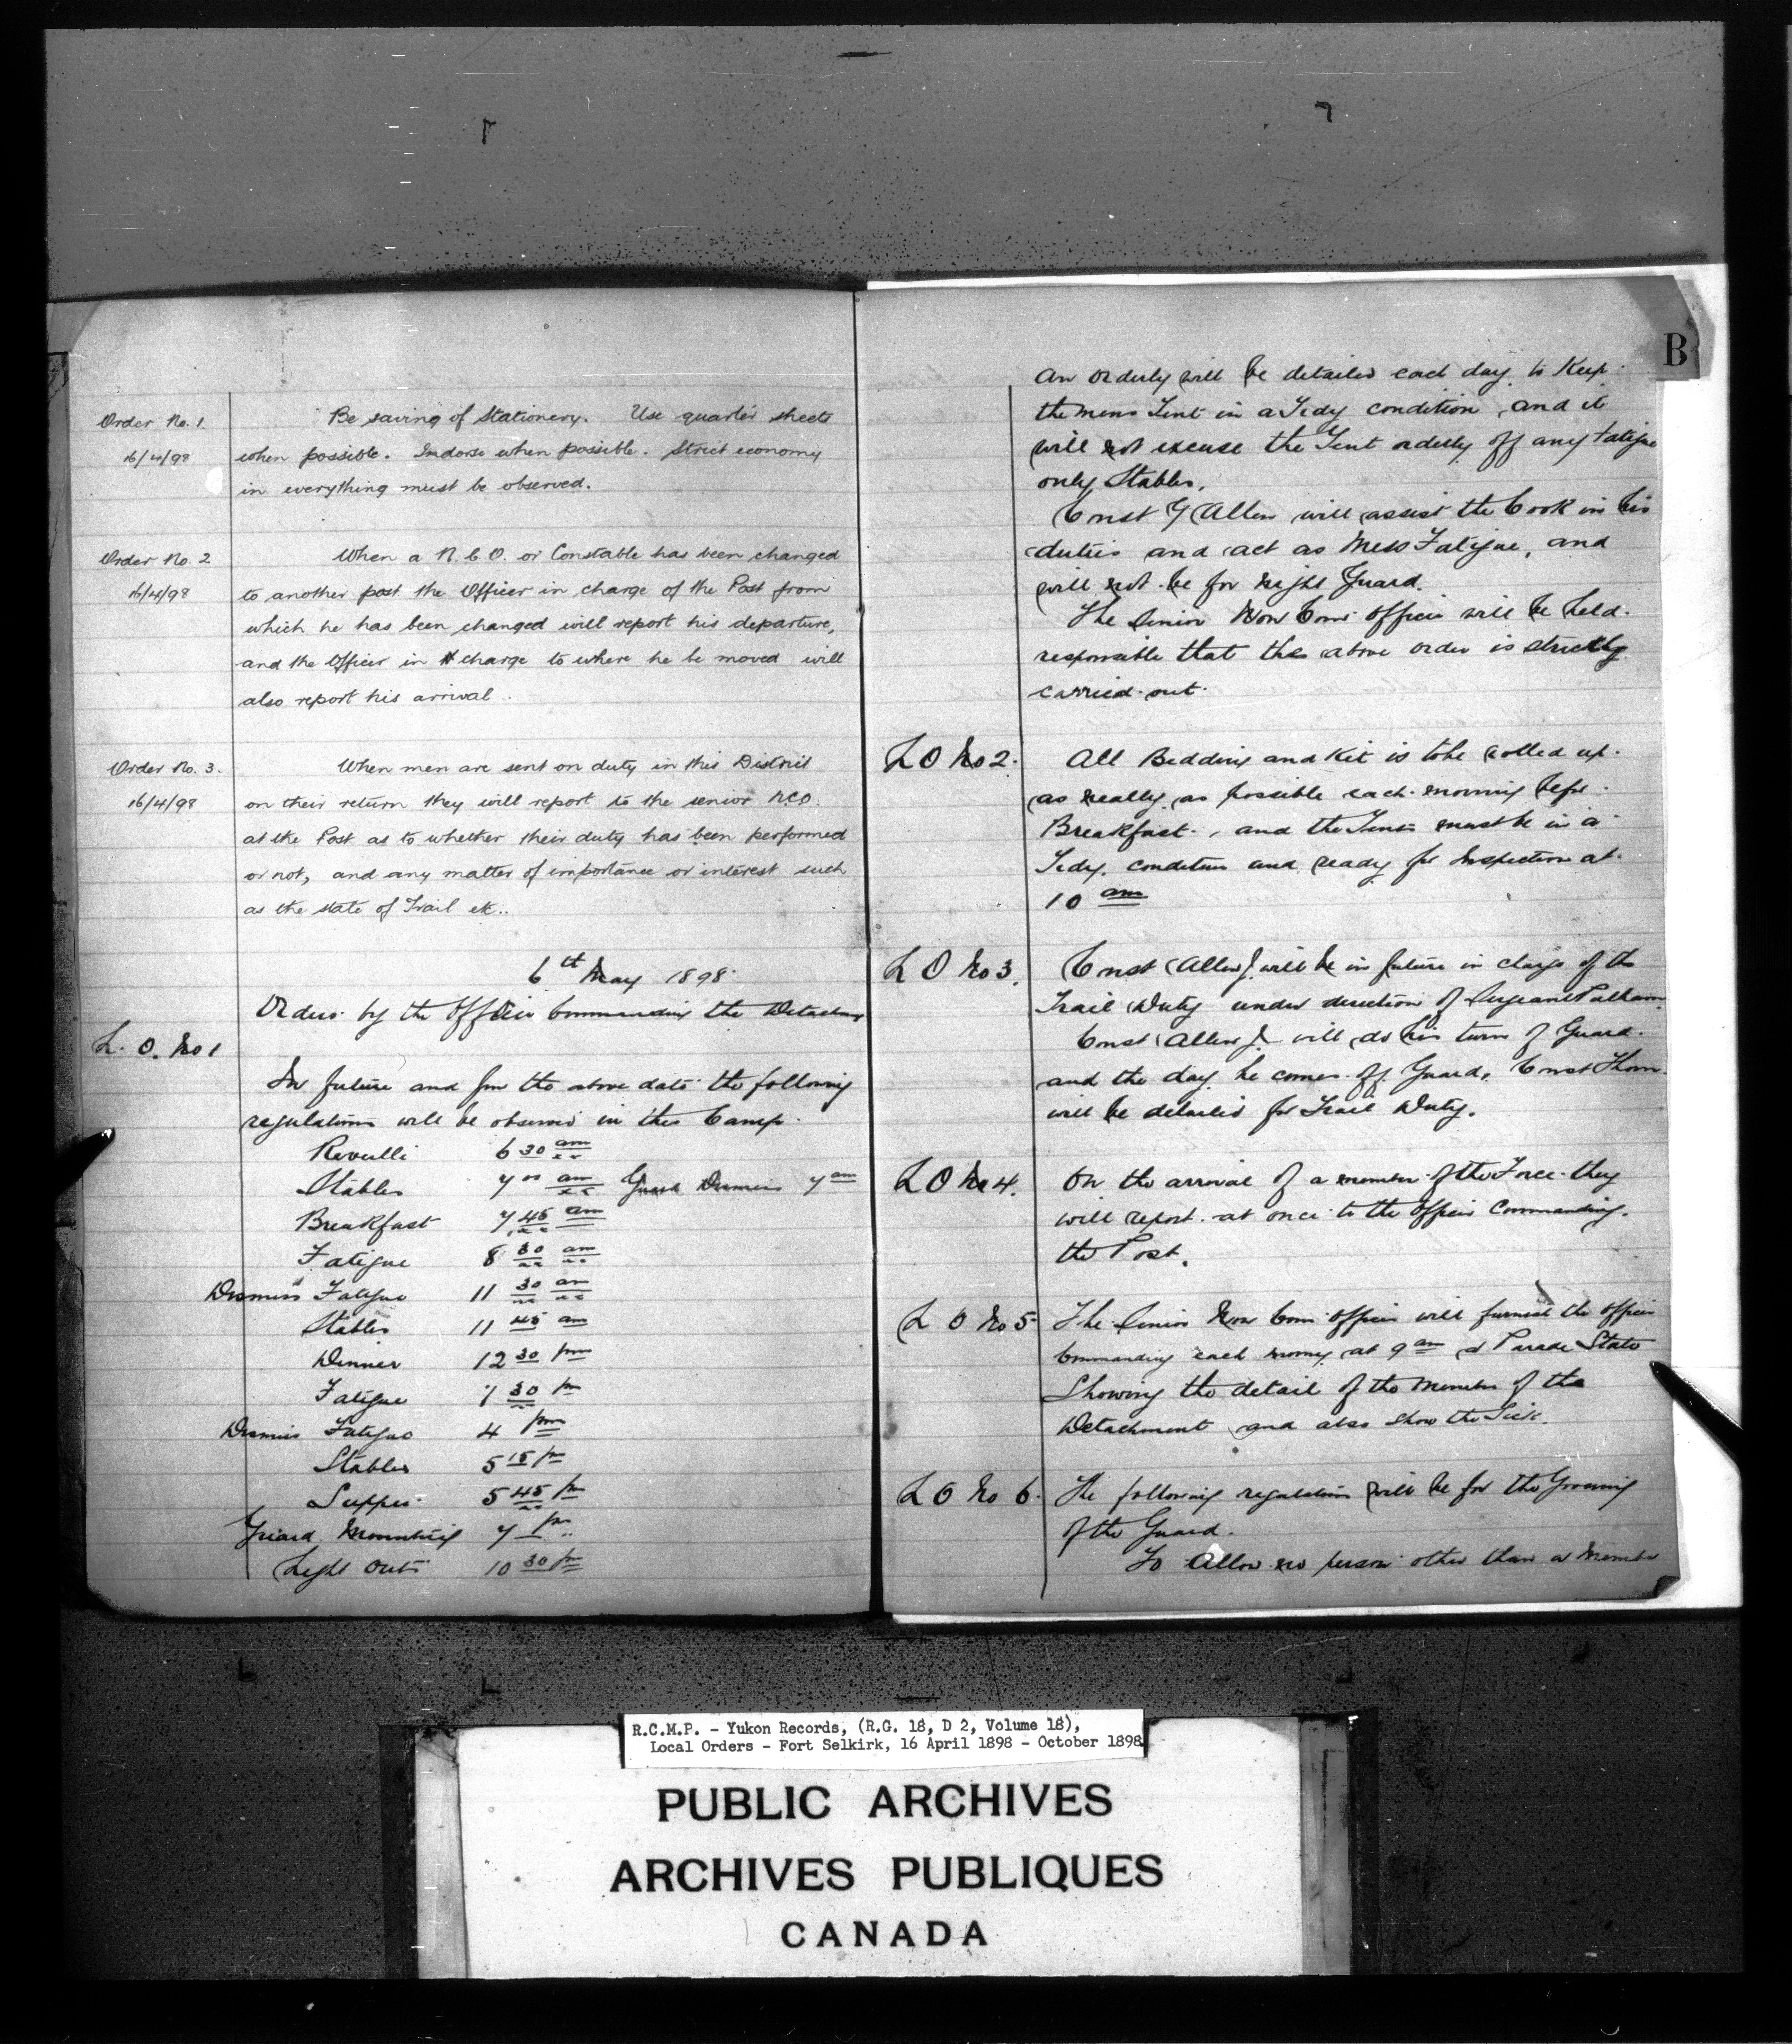 Order No. 1.
16/4/98
Be saving of Stationery. Use quarter sheets
when possible. Indorse when possible. Strict economy
in everything must be observed.
Order No. 2
16/4/98
When a N.C.O. or Constable has been changed
to another post the Officer in charge of the Post from
which he has been changed will report his departure,
and the Officer in charge to where he be moved will
also report his arrival.
Order No. 3.
16/4/98
When men are sent on duty in this District
on their return they will report to the senior NCO.
at the Post as to whether their duty has been performed
or not, and any matter of importance or interest such
as the state of Trail etc..
6th May 1898
Orders by the Officer Commanding the Detachment
L. O. No 1
In future and from the above date the following
regulations will be observed in this Camp.
Revulli 6 30 am
Stables 7 00 am Guard Dismiss 7 am
Breakfast 7.45 am
Fatigue 8 30 am
Dismiss Fatigue 11 30 am
Stables 11 45 am
Dinner 12 30 pm
Fatigue 1 30 pm
Dismiss Fatigue 4 pm
Stables 5 15 pm
Supper 5 45 pm
Guard Mounting 7 pm
Light Outs 10 30 pm
B
An Orderly will be detailed each day to Keep
the mens Tent in a Tedy condition, and it
will not excuse the Tent orderly off any fatigue
only Stables.
Const Allen will assist the Cook in his
duties and act as Mess Fatigue, and
will not be for night Guard.
The Senior Non Com Officer will be held
responsible that the above order is strictly
carried out.
L O No 2.
All Bedding and Kit is to be rolled up
as neatly as possible each morning before
Breakfast, and the Tents must be in a
Tedy condition and ready for Inspection at
10 am
L O No 3.
Const Allen J. will be in future in charge of the
Trail Duty under direction of Sergeant
Const Allen J. will do his turn of Guard
and the day he comes off Guard, Const Thorn
will be detailed for Trail Duty.
L O No 4.
On the arrival of a member of the Force they
will report at once to the Officer Commanding
the Post.
L O No 5
The Senior Non Com Officer will furnish the Officer
Commanding each morning at 9 am a Parade State
Showing the detail of the Members of the
Detachment and also show the Sick.
L O No 6.
The following regulations will be for the
of the Guard.
To Allow no person other than a Member
R.C.M.P. - Yukon Records, (R.G. 18, D 2, Volume 18),
Local Orders - Fort Selkirk, 16 April 1898 - October 1898
PUBLIC ARCHIVES
ARCHIVES PUBLIQUES
CANADA